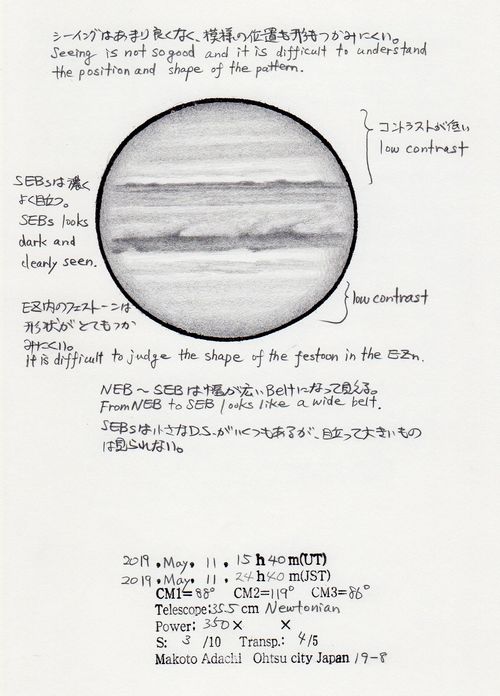 シーイングはあまり良くなく、模様の位置も形もつかみにくい。
Seeing is not so good and it is difficult to understand
the position and shape of the pattern.
コントラストが低い
low contrast
SEBsは濃く
よく目立つ。
SEBs looks
dark and
clearly seen.
low contrast
EZ内のフェストーンは
形状がとてもつか
みにくい。
It is difficult to judge the shape of the festoon in the EZn.
NEB～SEBは幅が広いBeltになって見える。
From NEB to SEB looks like a wide belt.
SEBsは小さなD.S.がいくつもあるが、目立って大きいもの
は見られない。
2019, May, 11, 15h40m(UT)
2019, May, 11, 24h40m(JST)
CM1=88° CM2=119° CM3=86°
Telescope;355cm Newtonian
Power; 350× ×
S: 3 /10 Transp.: 4/5
Makoto Adachi Ohtsu city Japan 19-8